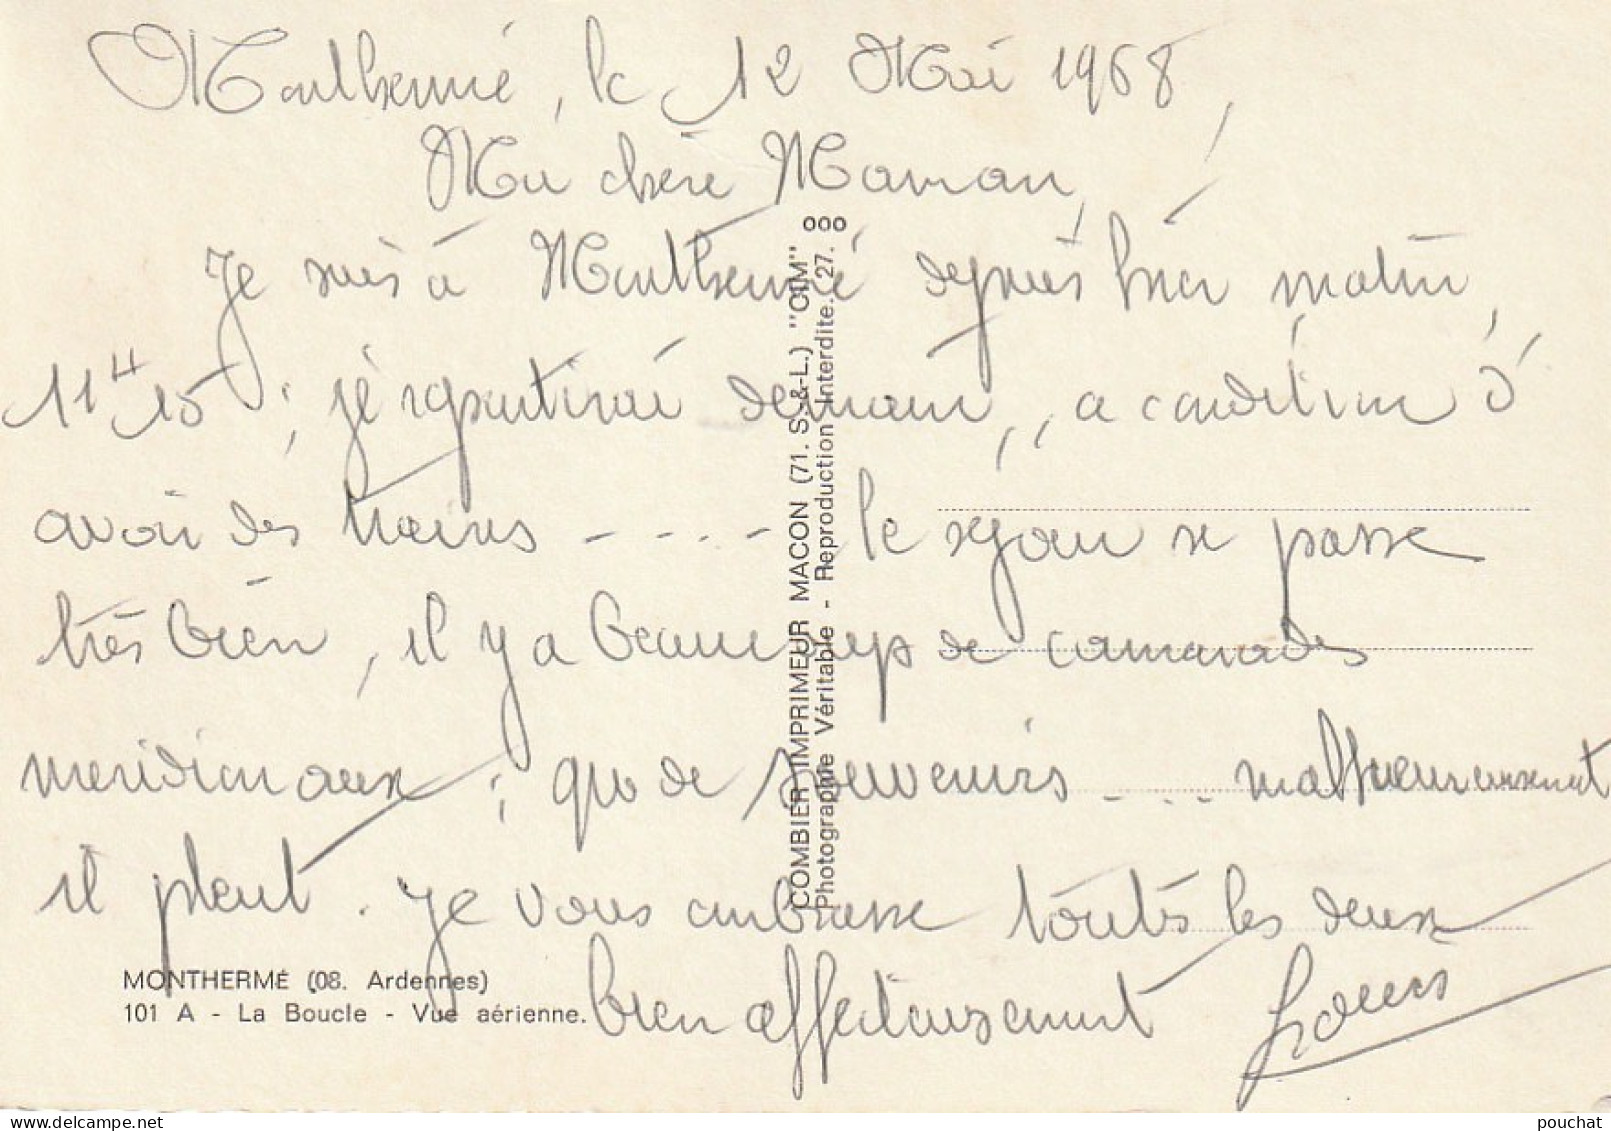 Monthermé, le 12 Mai 1968,
Ma chère Maman,
Je suis à Monthermé depuis hier matin,
11H15 ; je repartirai demain, à condition d'
avoir des trains - - . . - le séjour se passe
très bien, il y a beaucoup de camarades
meridionaux ; que de souvenirs - . . . malheureusement
il pleut. Je vous embrasse toutes les deux
bien affectueusement Louis
MONTHERMÉ (08. Ardennes)
101 A - La Boucle - Vue aérienne.
COMBIER IMPRIMEUR MACON (71. S.-&-L.) "CIM"
Photographie Véritable - Reproduction Interdite. 27.
pouchat